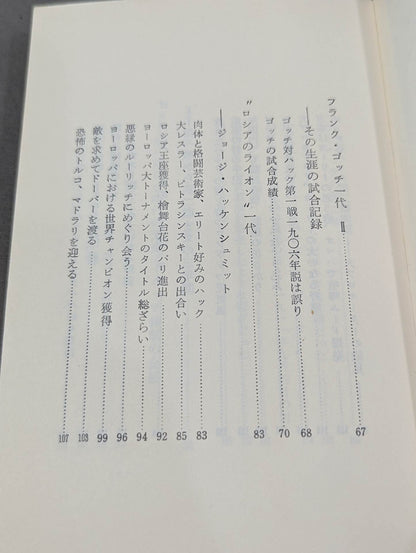 フランク・ゴッチ一代 Ⅱ……67
――その生涯の試合記録
ゴッチ対ハック第一戦一九〇六年説は誤り……68
ゴッチの試合成績……70
〝ロシアのライオン〟一代……83
――ジョージ・ハッケンシュミット
肉体と格闘芸術家、エリート好みのハック……83
大レスラー、ピトラシンスキーとの出合い……85
ロシア王座獲得、檜舞台花のパリ進出……92
ヨーロッパ大トーナメントのタイトル総ざらい……94
悪縁のルーリッチにめぐり会う……96
ヨーロッパにおける世界チャンピオン獲得……99
敵を求めてドーバーを渡る……103
恐怖のトルコ、マドラリを迎える……107